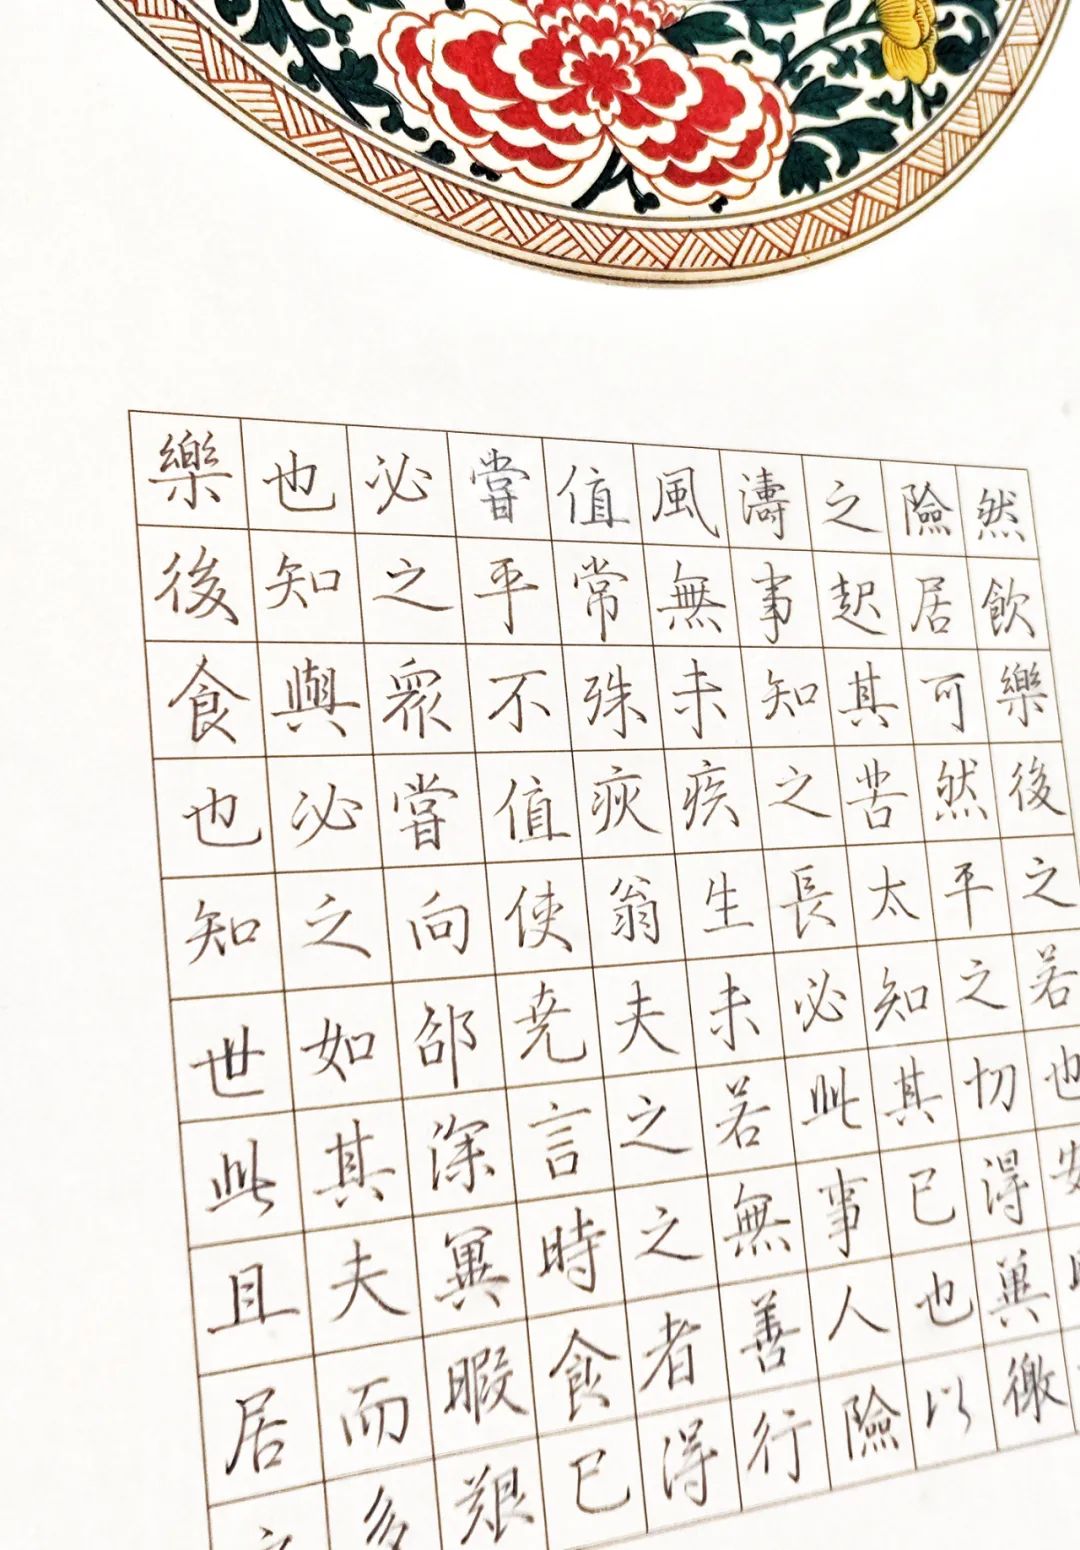 樂也必嘗值風濤之險然
後知之平常無事起居飲
食與眾不殊未知其可樂
也必嘗值疢疾之苦然後
知之向使翁生長太平之
世如邵尭夫未必知之若
此其深言之若此其切也
且夫冀時之無事已得安
居而暇食者善人也冀
多艱已得行險以徼